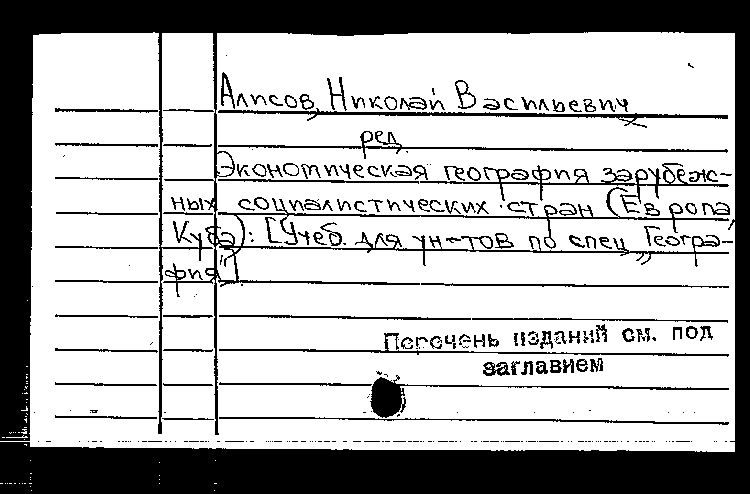 Алисов, Николай Васильевич
ред.
Экономическая география зарубеж-
ных социалистических стран (Европа,
Куба): [Учеб. для ун-тов по спец. „Геогра-
фия"].
Перечень изданий см. под
заглавием